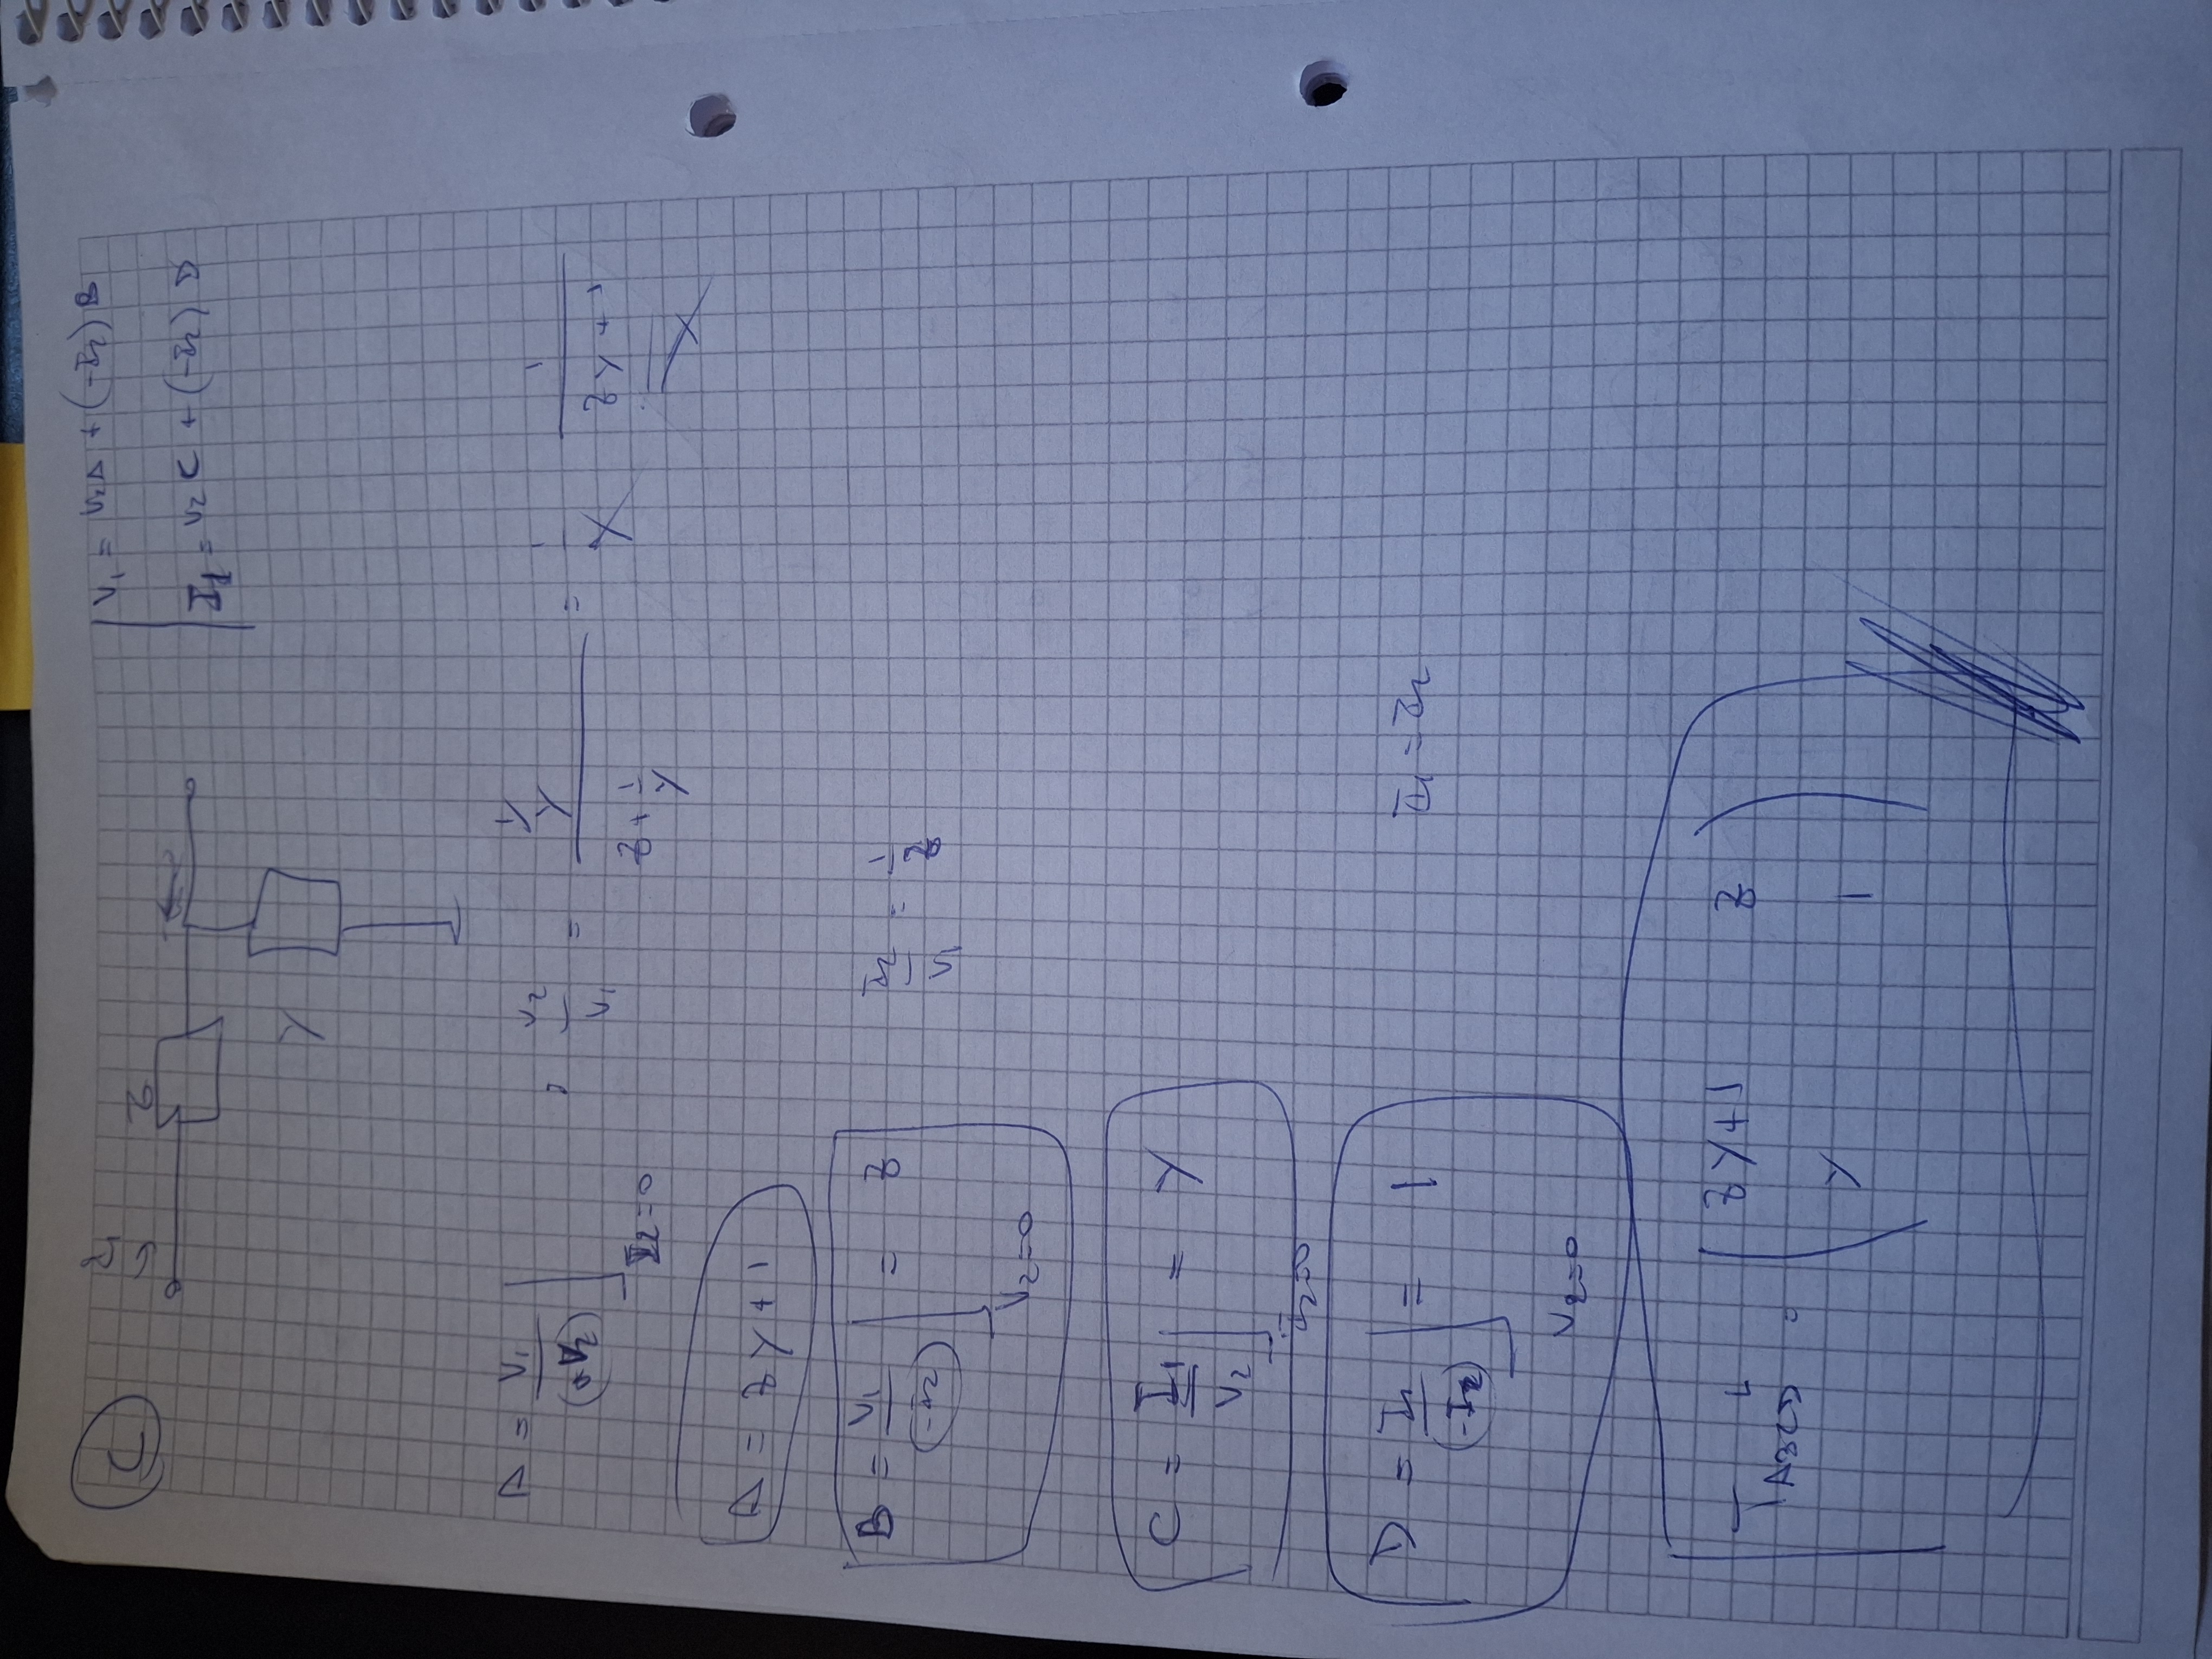 C
I1
Z
V1 = V2 A + (-I2) B
I1 = V2 C + (-I2) D
Y
A = V1 / (+V2) | I2=0 ; V2 / V1 = (1/Y) / (Z + 1/Y) = 1/Y 1 / ((ZY + 1) / Y)
A = ZY + 1
B = V1 / (-I2) | V2=0 = Z I2 / V1 = 1 / Z
C = I1 / V2 | I2=0 = Y
D = I1 / (-I2) | V2=0 = 1 I1 = I2
T ABCD = ( ZY+1 Z
Y 1 )